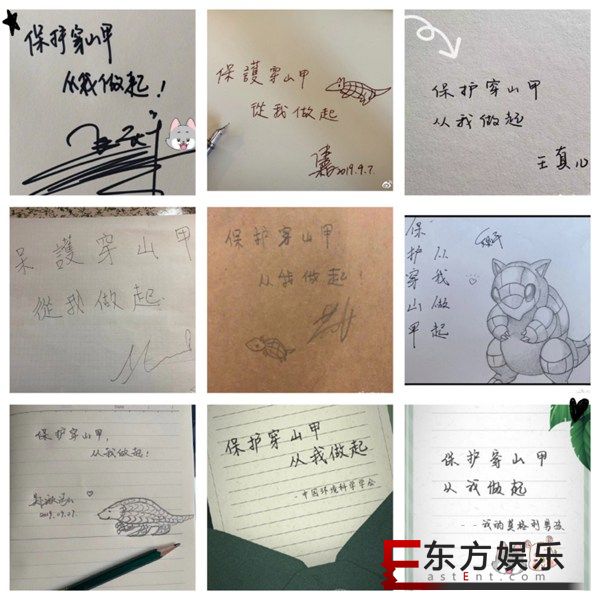 保护穿山甲
从我做起!
保護穿山甲
從我做起
2019.9.7.
保护穿山甲
从我做起
王真儿
保護穿山甲
從我做起
保护穿山甲
从我做起!
保护穿山甲
从我做起
保护穿山甲,
从我做起!
2019.09.07.
保护穿山甲
从我做起
-中国环境科学学会
保护穿山甲
从我做起
---我的莫格利男孩
东方娱乐
EastEnt.com